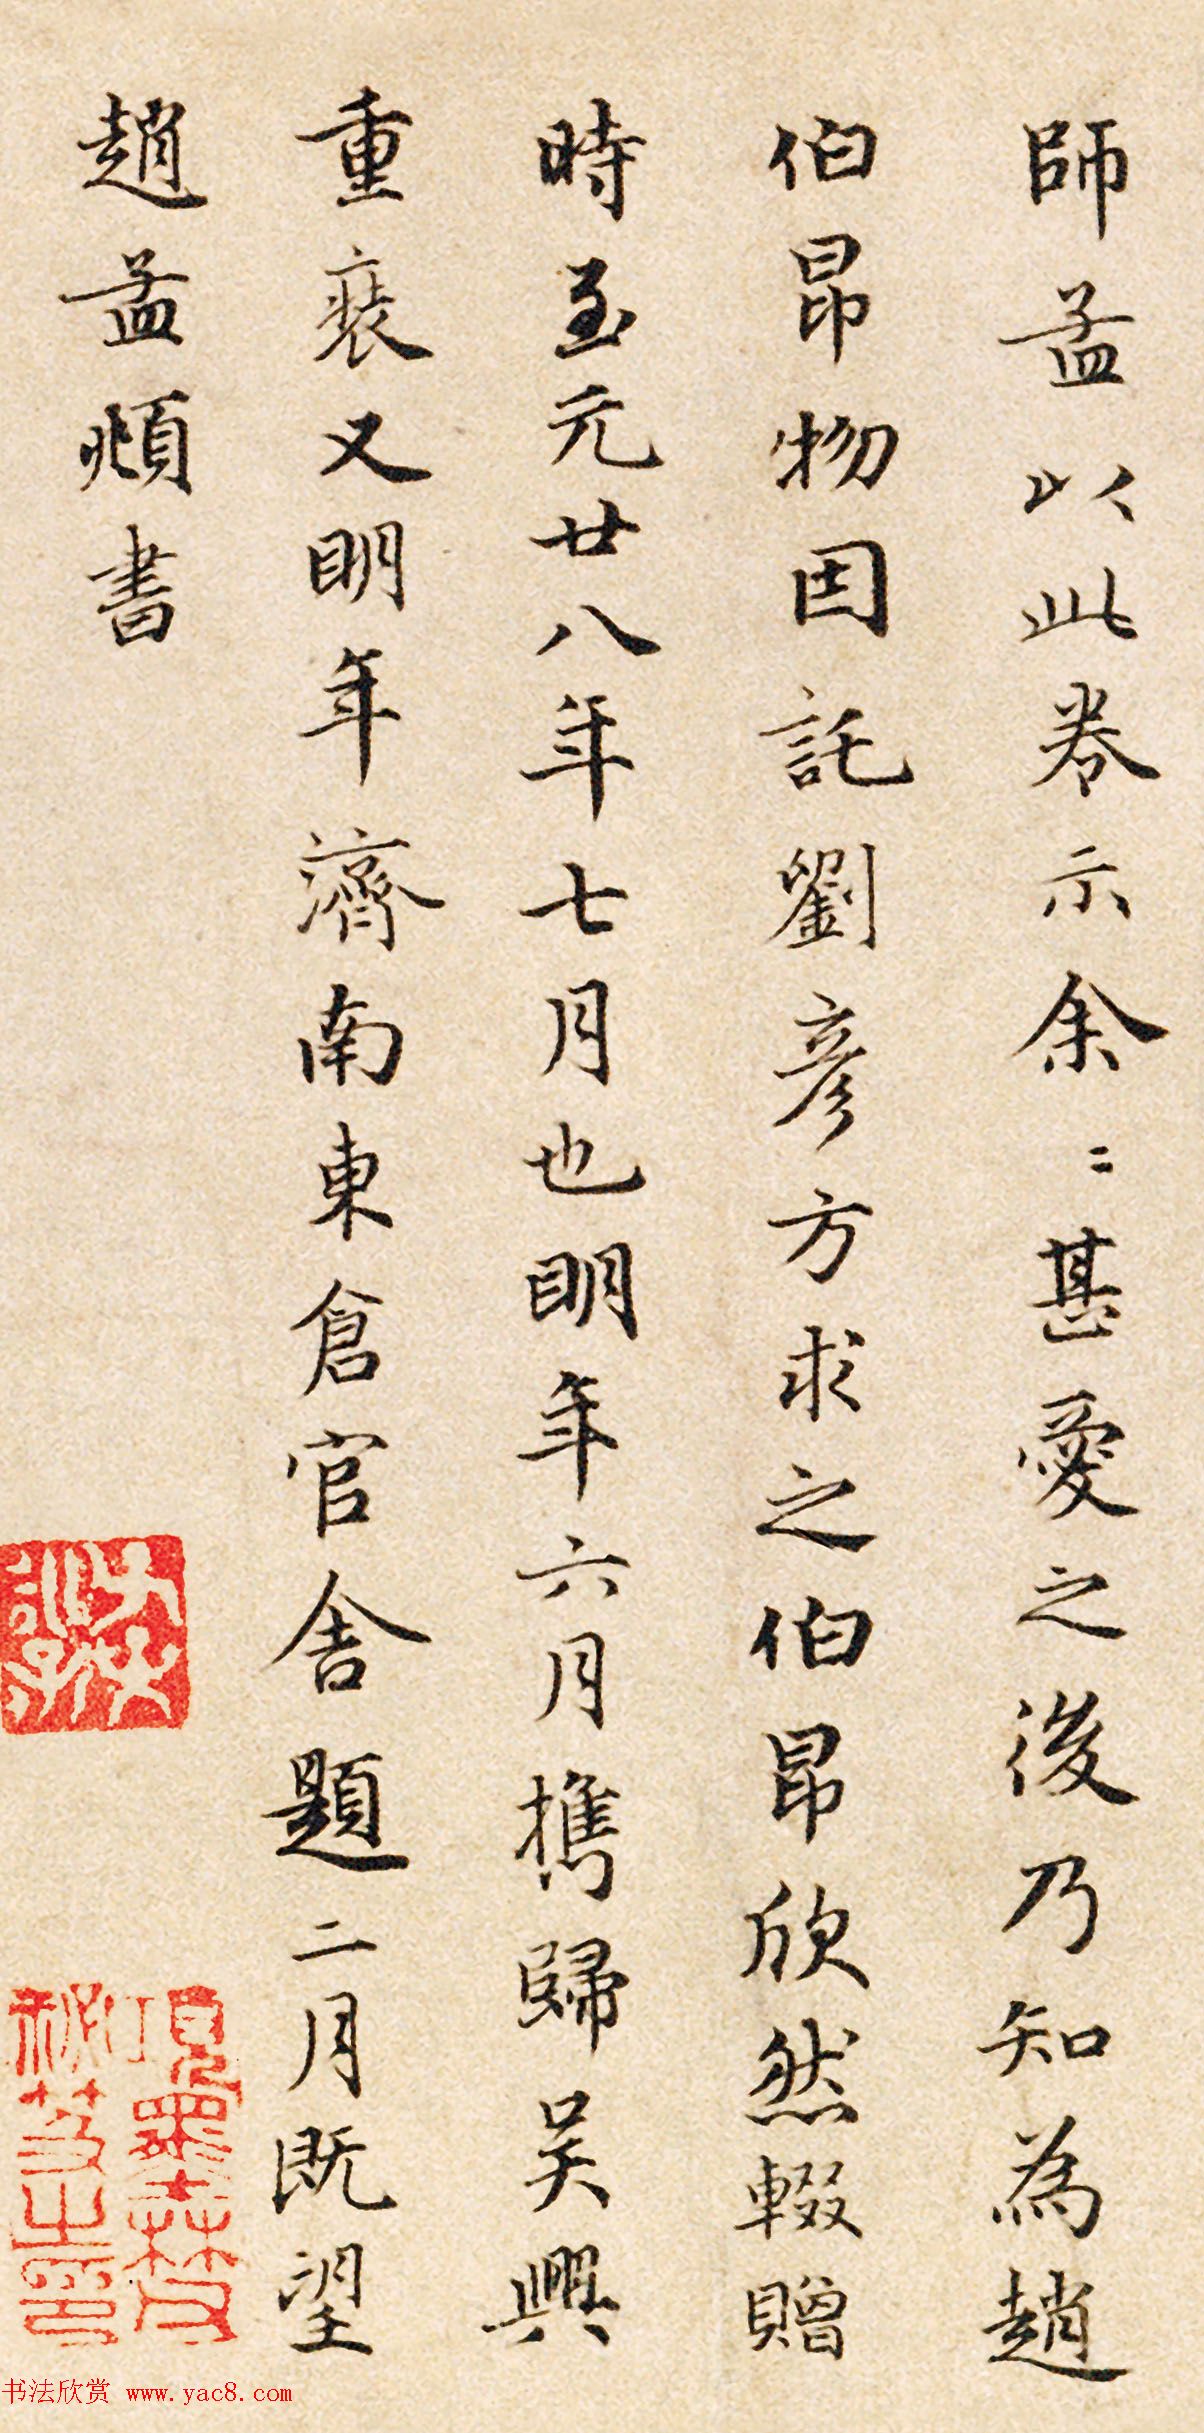 師孟以此卷示余〻甚愛之後乃知為趙
伯昂物因託劉彦方求之伯昂欣然輟贈
時至元廿八年七月也明年六月攜歸吴興
重裝又明年濟南東倉官舍題二月既望
趙孟頫書
項墨林父
秘笈之印
书法欣赏 www.yac8.com